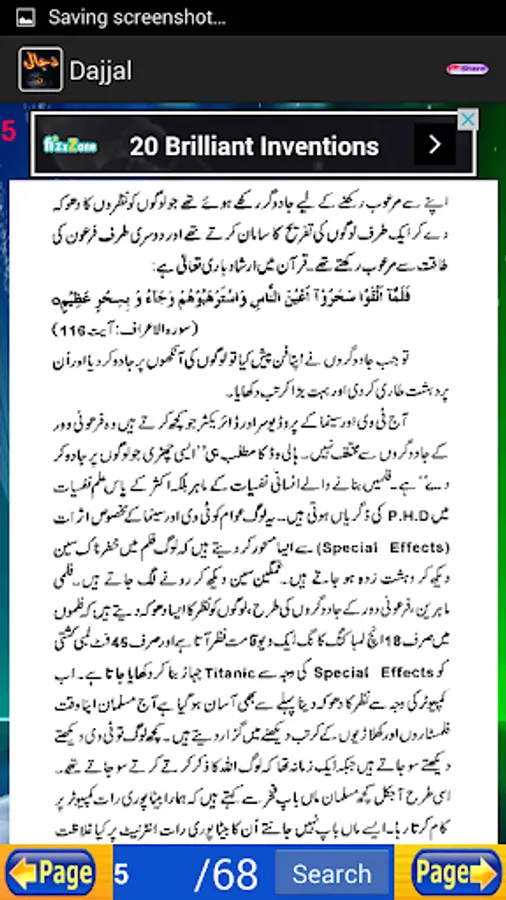 Saving screenshot...
دجال
Dajjal
Share
5
FizzZone
20 Brilliant Inventions
اپنے سے مرعوب رکھنے کے لیے جادوگر رکھے ہوئے تھے جو لوگوں کو نظروں کا دھوکہ
دے کر ایک طرف لوگوں کی تفریح کا سامان کرتے تھے اور دوسری طرف فرعون کی
طاقت سے مرعوب رکھتے تھے۔ قرآن میں ارشاد باری تعالٰی ہے:
فَلَمَّآ اَلْقَوْا سَحَرُوْآ اَعْيُنَ النَّاسِ وَاسْتَرْهَبُوْهُمْ وَجَآءُ وْ بِسِحْرٍ عَظِيْمٍ○
(سورہ الاعراف: آیت 116)
تو جب جادوگروں نے اپنا فن پیش کیا تو لوگوں کی آنکھوں پر جادو کر دیا اور اُن
پر دہشت طاری کر دی اور بہت بڑا کرتب دکھایا۔
آج ٹی وی اور سینما کے پروڈیوسر اور ڈائریکٹر جو کچھ کرتے ہیں وہ فرعونی دور
کے جادوگروں سے مختلف نہیں۔ ہالی وڈ کا مطلب ہی ”ایسی چھڑی جو لوگوں پر جادو کر
دے“ ہے۔ فلمیں بنانے والے انسانی نفسیات کے ماہر بلکہ اکثر کے پاس علم نفسیات
میں P.H.D کی ڈگریاں ہوتی ہیں۔ یہ لوگ عوام کو ٹی وی اور سینما کے مخصوص اثرات
(Special Effects) سے ایسا مسحور کر دیتے ہیں کہ لوگ فلم میں خطرناک سین
دیکھ کر دہشت زدہ ہو جاتے ہیں۔ غمگین سین دیکھ کر رونے لگ جاتے ہیں۔ فلمی
ماہرین، فرعونی دور کے جادوگروں کی طرح، لوگوں کو نظر کا ایسا دھوکہ دیتے ہیں کہ فلموں
میں صرف 18 انچ لمبا کنگ کانگ ایک دیو قامت نظر آتا ہے اور صرف 45 فٹ لمبی کشتی
کو Special Effects کی وجہ سے Titanic جہاز بنا کر دکھایا جاتا ہے۔ اب
کمپیوٹر کی وجہ سے نظر کا دھوکہ دینا پہلے سے بھی آسان ہو گیا ہے آج مسلمان اپنا وقت
فلمسٹاروں اور کھلاڑیوں کے کرتب دیکھنے میں گزار دیتے ہیں۔ کچھ لوگ تو ٹی وی دیکھتے
دیکھتے سو جاتے ہیں جبکہ ایک زمانہ تھا کہ لوگ اللہ کا ذکر کرتے کرتے سو جاتے تھے۔
اسی طرح آجکل کچھ مسلمان ماں باپ فخر سے کہتے ہیں کہ ہمارا بیٹا پوری رات کمپیوٹر پر
کام کرتا رہا۔ ایسے ماں باپ نہیں جانتے اُن کا بیٹا پوری رات انٹرنیٹ پر کیا غلاظت
Page
5
/68
Search
Page